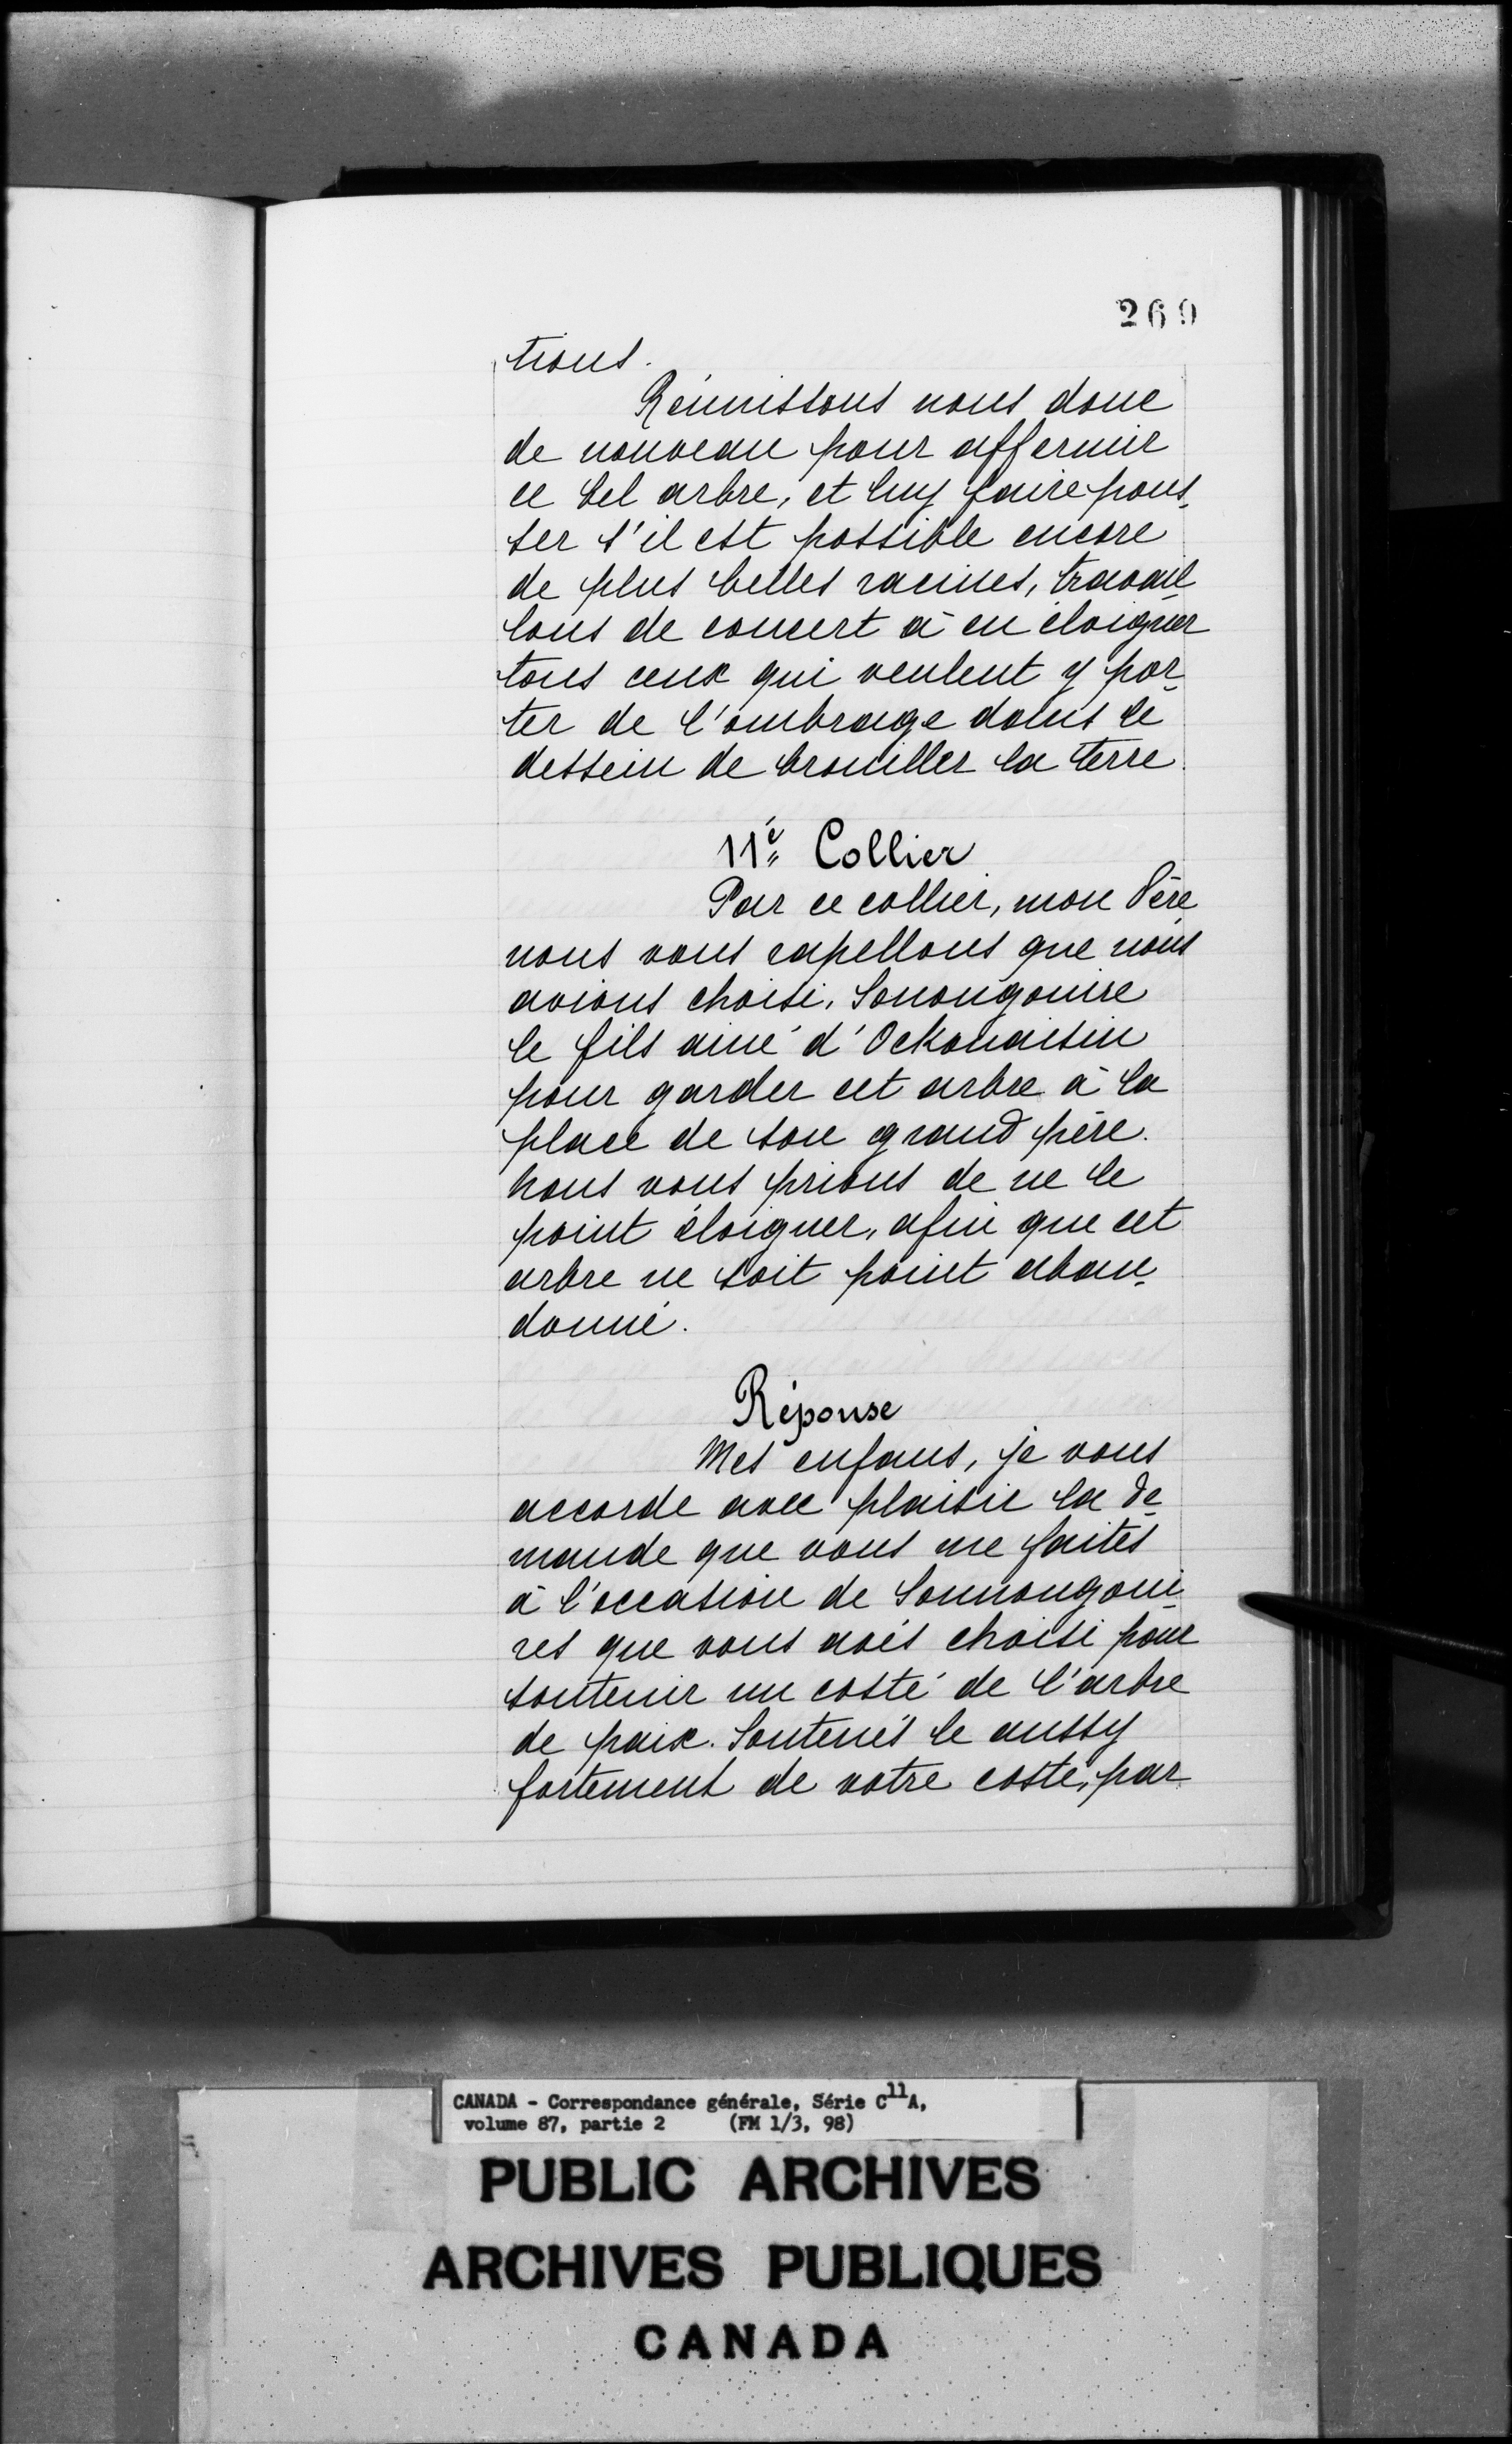 269
tions.
Réunissons nous donc
de nouveau pour affermir
ce bel arbre, et luy faire pous-
ser s'il est possible encore
de plus belles racines, travail-
lons de concert à en éloigner
tous ceux qui veulent y por-
ter de l'ombrage dans le
dessein de brouiller la terre.
11e Collier
Par ce collier, mon Père
nous vous rapellons que nous
avions choisi, Sonongouire
le fils ainé d'Ockonaisin
pour garder cet arbre à la
place de son grand père.
Nous vous prions de ne le
point éloigner, afin que cet
arbre ne soit point aban-
donné.
Réponse
Mes enfans, je vous
accorde avec plaisir la de-
mande que vous me faites
à l'occasion de Sonnongoui-
res que vous avés choisi pour
soutenir un costé de l'arbre
de paix. Soutenés le aussy
fortement de votre costé, par
CANADA - Correspondance générale, Série C11A,
volume 87, partie 2 (FM 1/3, 98)
PUBLIC ARCHIVES
ARCHIVES PUBLIQUES
CANADA